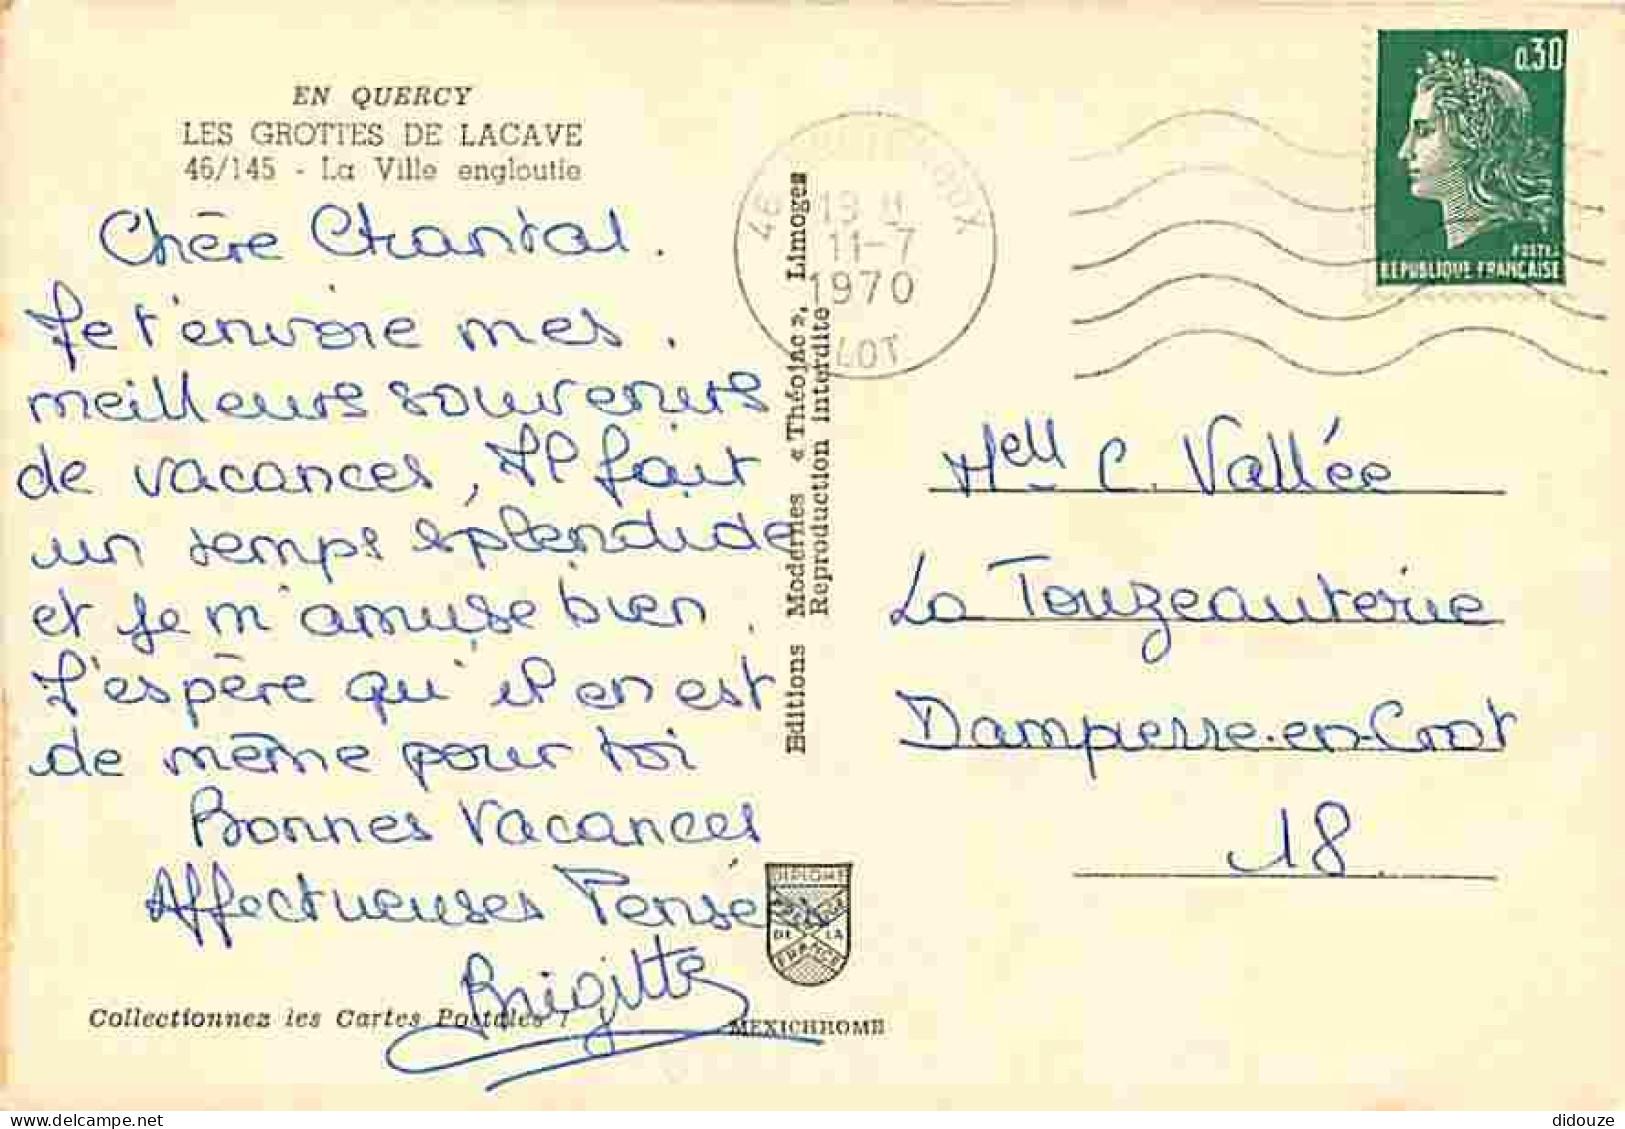 EN QUERCY
LES GROTTES DE LACAVE
46/145 - La Ville engloutie
Chère Chantal.
Je t'envoie mes
meilleurs souvenirs
de vacances, Il fait
un temps splendide
et je m'amuse bien.
J'espère qu'il en est
de même pour toi
Bonnes Vacances
Affectueuses Pensées
Brigitte
Collectionnez les Cartes Postales !
MEXICHROME
DIPLOME
DE LA
FRANCE
Editions Modernes « Théojac », Limoges
Reproduction interdite
46
19 H
11-7
1970
LOT
0.30
POSTES
REPUBLIQUE FRANCAISE
Mell C. Vallée
La Touzeauterie
Dampierre-en-Crot
18.
didouze